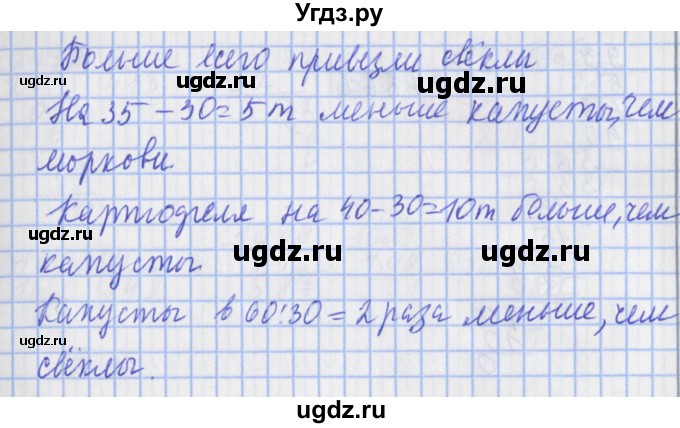 Угдз.ру
Больше всего привезли свёклы
На 35-30=5т меньше капусты, чем
моркови
Картофеля на 40-30=10т больше, чем
капусты
Капусты в 60:30=2 раза меньше, чем
свёклы.
ugdz.ru
ugdz.ru
ugdz.ru
ugdz.ru
ugdz.ru
ugdz.ru
ugdz.ru
ugdz.ru
ugdz.ru
ugdz.ru
ugdz.ru
ugdz.ru